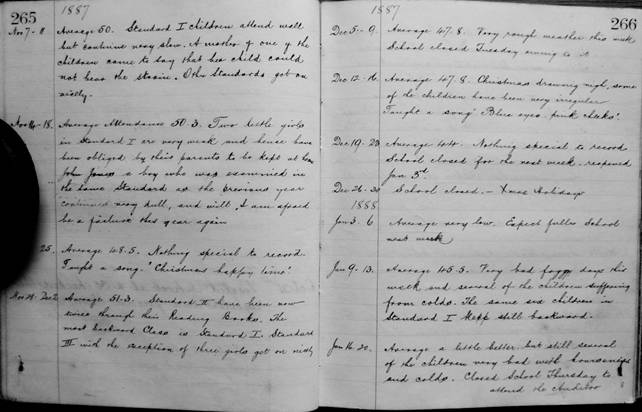 265
1887
Nov 7 - 11
Average 50. Standard I children attend well
but continue very slow. A mother of one of the
children came to say that her child could
not bear the strain. Other Standards got on
nicely.
Nov 14 - 18.
Average Attendance 50.3. Two little girls
in Standard I are very weak and hence have
been obliged by their parents to be kept at home
John Jones a boy who was examined in
the same Standard as the previous year
continues very dull, and will I am afraid
be a failure this year again
25.
Average 48.5. Nothing special to record
Taught a song. 'Christmas happy time'
Average 51.3. Standard II have been now
twice through their Reading Books. The
most backward Class is Standard I. Standard
III with the exception of three girls get on nicely
1887
266
Dec 5 - 9.
Average 47.8. Very rough weather this week
School closed Tuesday owing to it
Dec 12 - 16
Average 47.8. Christmas drawing nigh, some
of the children have been very irregular
Taught a song 'Blue eyes pink cheeks'.
Dec 19 - 23
Average 44. Nothing special to record
School closed for the next week. reopened
Jan 3rd
Dec 26 - 30
School closed. - Xmas Holidays
1888
Jan 3 - 6
Average very low. Expect fuller School
next week
Jan 9 - 13.
Average 45.5. Very bad foggy days this
week and several of the children suffering
from colds. The same six children in
Standard I kept still backward.
Jan 16 - 20.
Average a little better but still several
of the children very bad with hoarseness
and colds. Closed School Thursday to
attend the Auditor